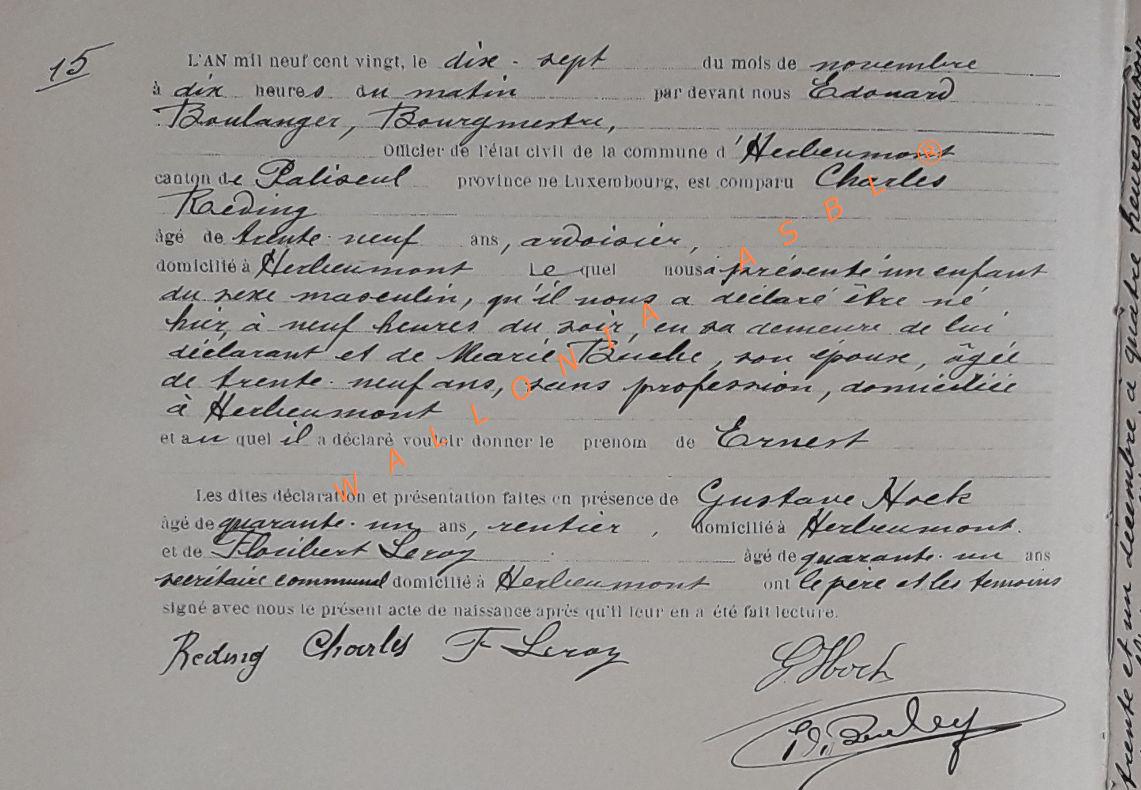 15
L'AN mil neuf cent vingt, le dix-sept du mois de novembre
à dix heures du matin par devant nous Edouard
Boulanger, Bourgmestre,
Officier de l'état civil de la commune d'Herbeumont
canton de Paliseul province de Luxembourg, est comparu Charles
Reding
âgé de trente-neuf ans, ardoisier,
domicilié à Herbeumont Lequel nous a présenté un enfant
du sexe masculin, qu'il nous a déclaré être né
hier, à neuf heures du soir, en sa demeure de lui
déclarant et de Marie Buche, son épouse, âgée
de trente-neuf ans, sans profession, domiciliée
à Herbeumont
et au quel il a déclaré vouloir donner le prenom de Ernest
Les dites déclaration et présentation faites en présence de Gustave Hock
âgé de quarante-un ans, rentier, domicilié à Herbeumont.
et de Floribert Leroy âgé de quarante-un ans
secrétaire communal domicilié à Herbeumont ont le père et les témoins
signé avec nous le présent acte de naissance après qu'il leur en a été fait lecture.
Reding Charles F Leroy G. Hock
WALLONIA ASBL